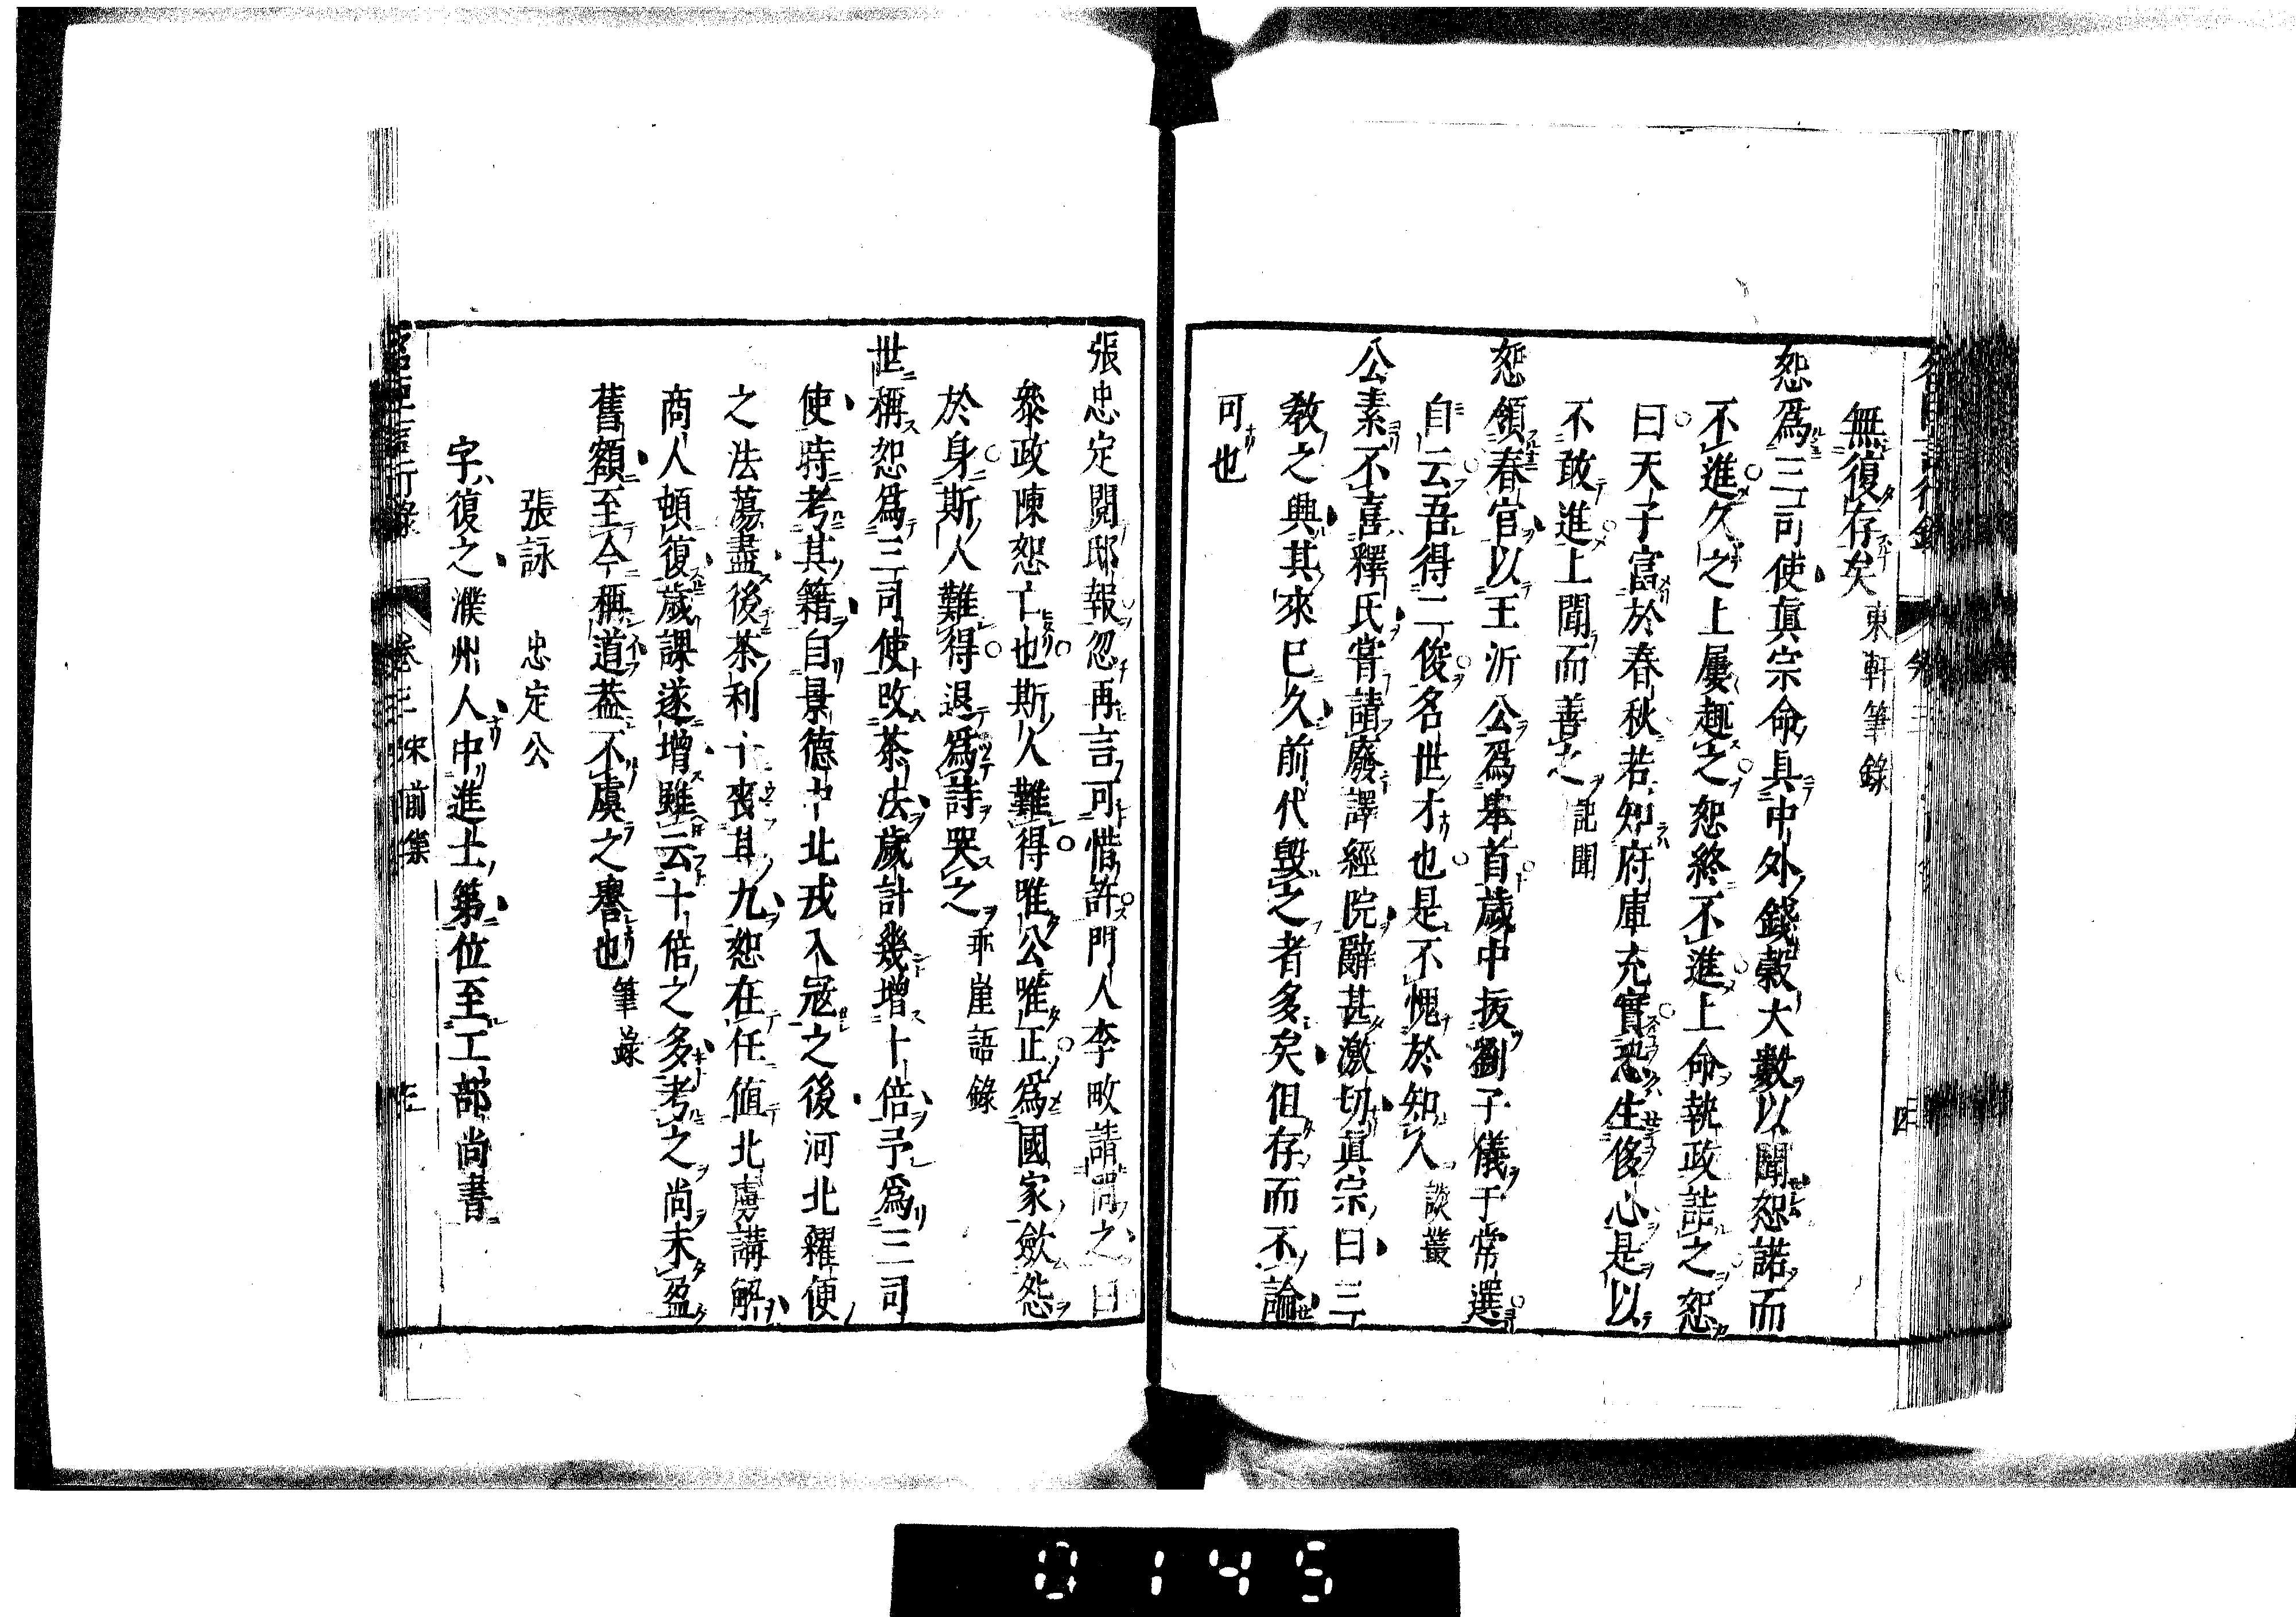 無復存矣 東軒筆錄
恕爲三司使眞宗命具中外錢穀大數以聞恕諾而
不進久之上屢趣之恕終不進上命執政詰之恕
曰天子富於春秋若知府庫充實恐生侈心是以
不敢進上聞而善之 記聞
恕領春官以王沂公爲舉首歲中拔劉子儀于常選
自云吾得二俊名世才也是不愧於知人 談叢
公素不喜釋氏嘗請廢譯經院辭甚激切眞宗曰三
敎之興其來已久前代毀之者多矣但存而不論
可也
張忠定閱邸報忽再言可惜許門人李畋請問之曰
叅政陳恕亡也斯人難得唯公唯正爲國家斂怨
於身斯人難得退爲詩哭之 乖崖語錄
世稱恕爲三司使改茶法歲計幾增十倍予爲三司
使時考其籍自景德中北戎入寇之後河北糴便
之法蕩盡後茶利十喪其九恕在任值北虜講解
商人頓復歲課遂增雖云十倍之多考之尚未盈
舊額至今稱道葢不虞之譽也 筆錄
張詠 忠定公
字復之濮州人中進士第位至工部尚書
言行錄 卷三 宋前集
0145